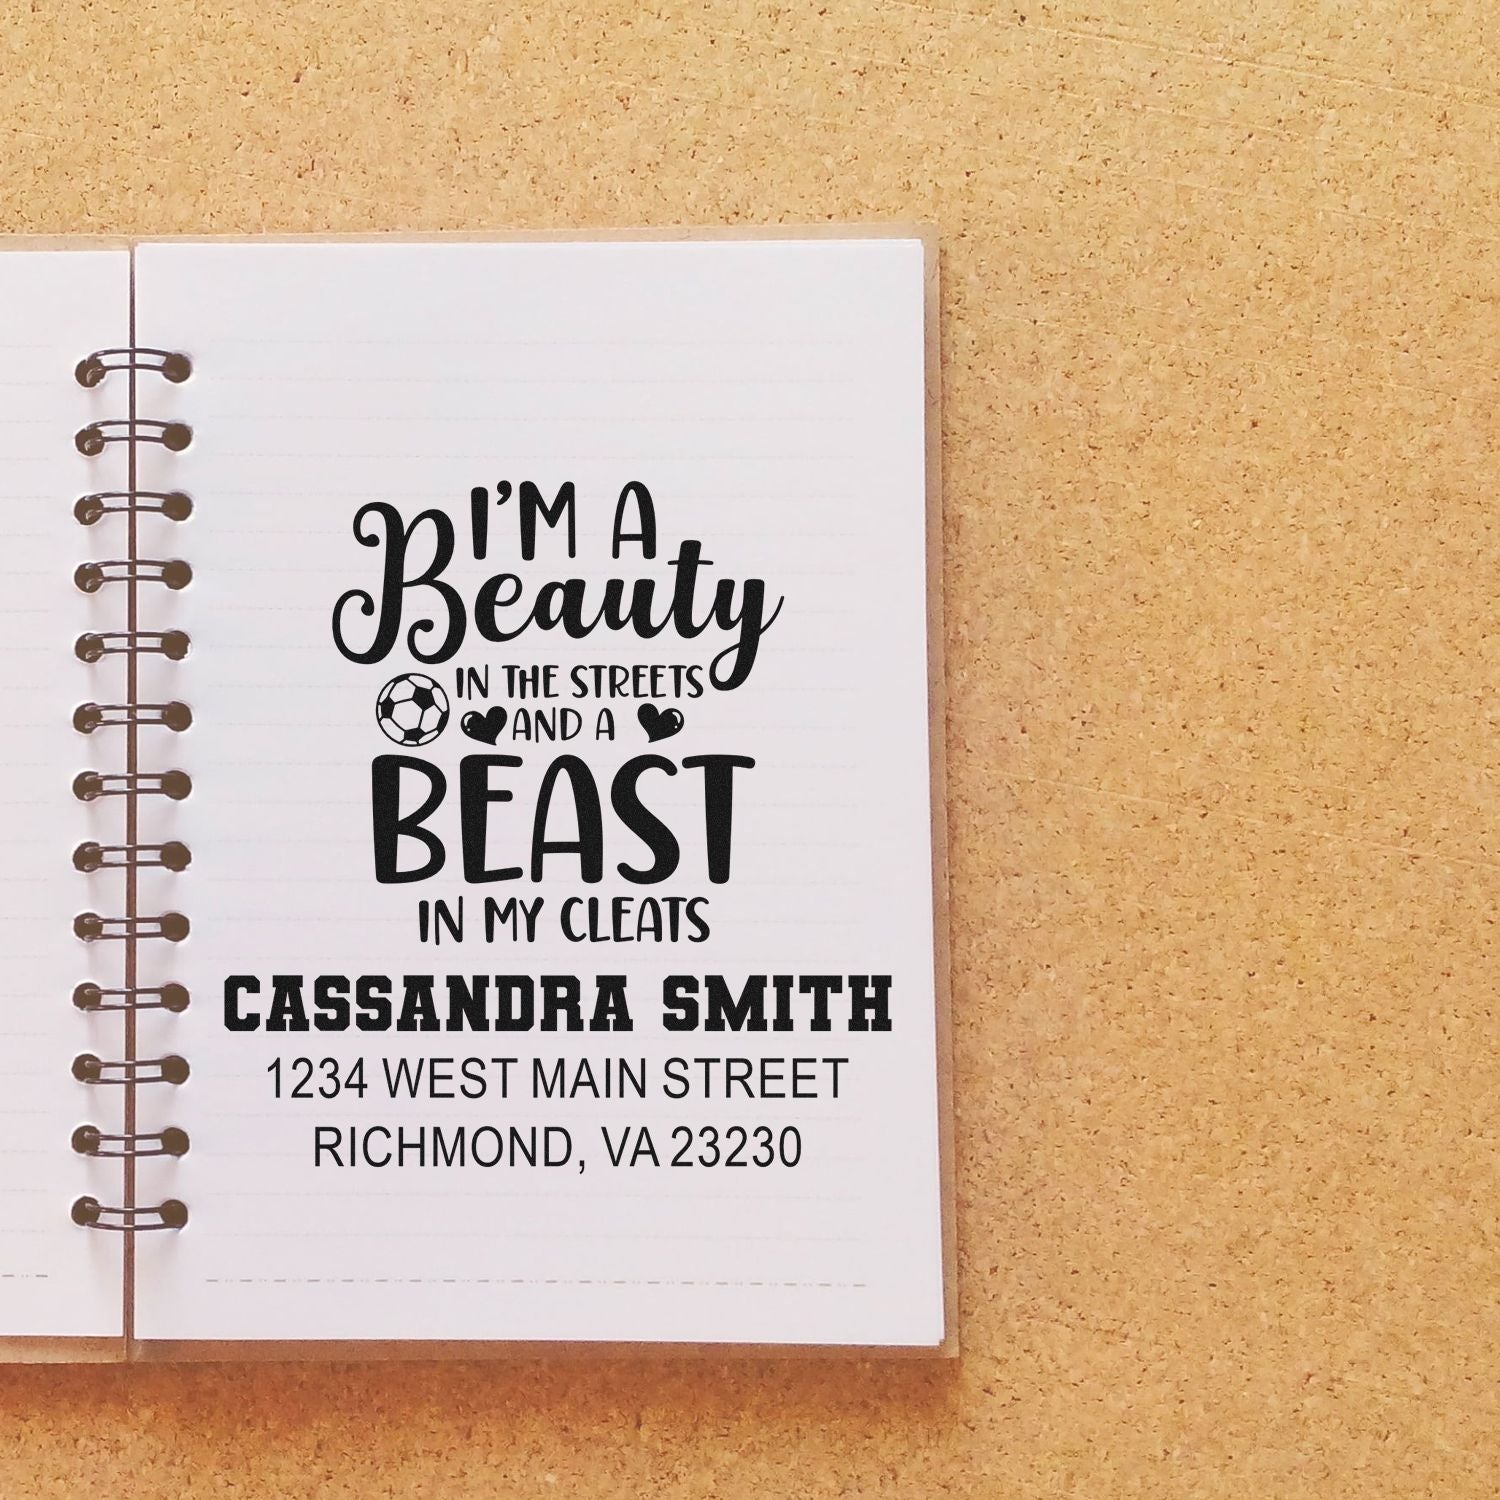 I'M A
Beauty
IN THE STREETS
AND A
BEAST
IN MY CLEATS
CASSANDRA SMITH
1234 WEST MAIN STREET
RICHMOND, VA 23230